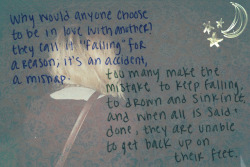 why would anyone choose
to be in love (with another)
they call it "falling" for
a reason, it's an accident,
a mishap.
too many make the
mistake to keep falling,
to drown and sink in it
and when all is said +
done, they are unable
to get back up on
their feet.